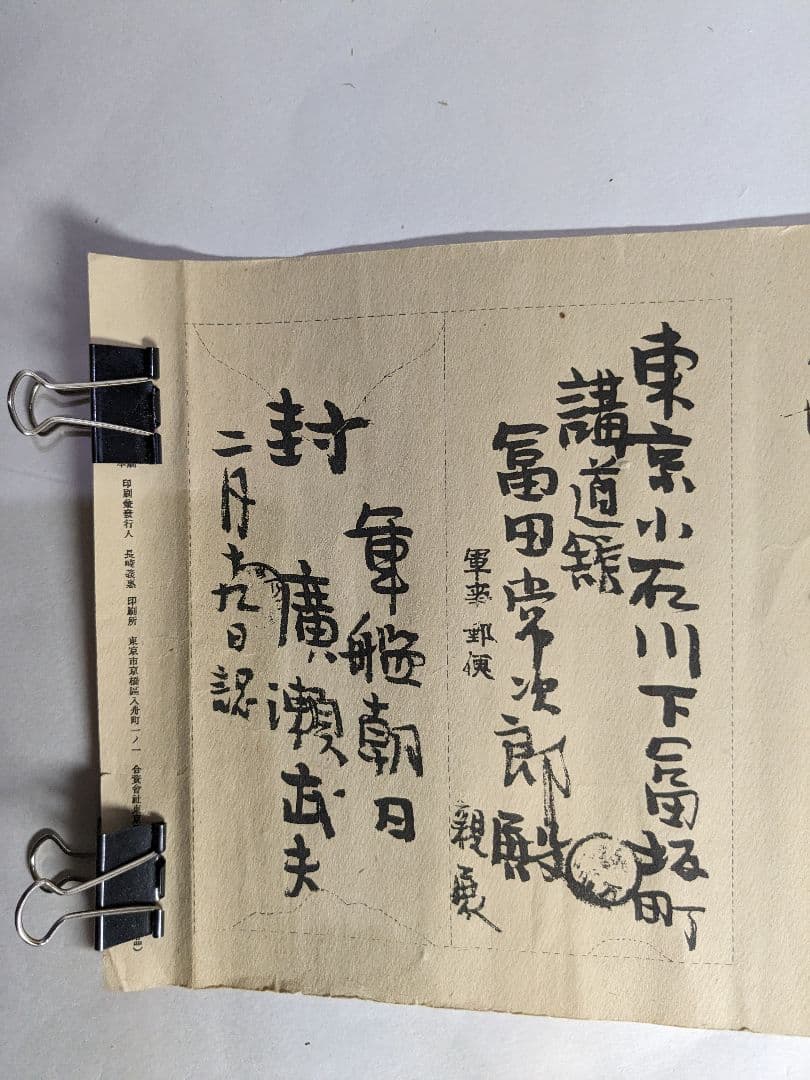 東京小石川下冨坂町
講道館
冨田常次郎殿
軍事郵便
親展
軍艦朝日
廣瀬武夫
封
二月十九日認
印刷兼發行人 長崎 印刷所 東京市京橋區入舟町一ノ一 合資會社東京